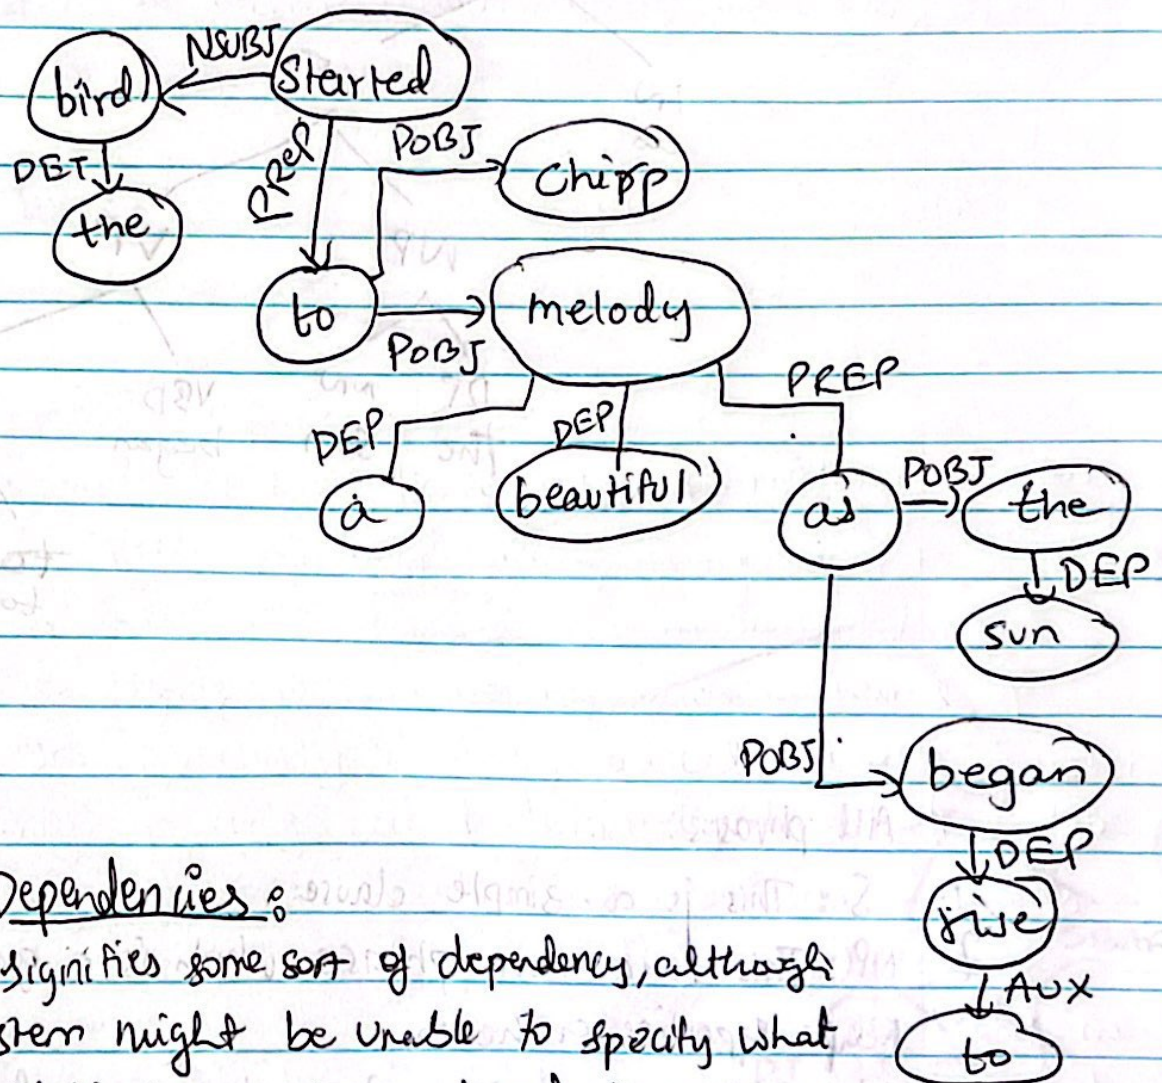 NSUBJ
bird
Started
DET
PREP
POBJ
Chirp
the
to
POBJ
melody
DEP
DEP
PREP
a
beautiful
as
POBJ
the
DEP
sun
POBJ
began
DEP
Dependencies :
signifies some sort of dependency, although
AUX
might be unable to specify what
to